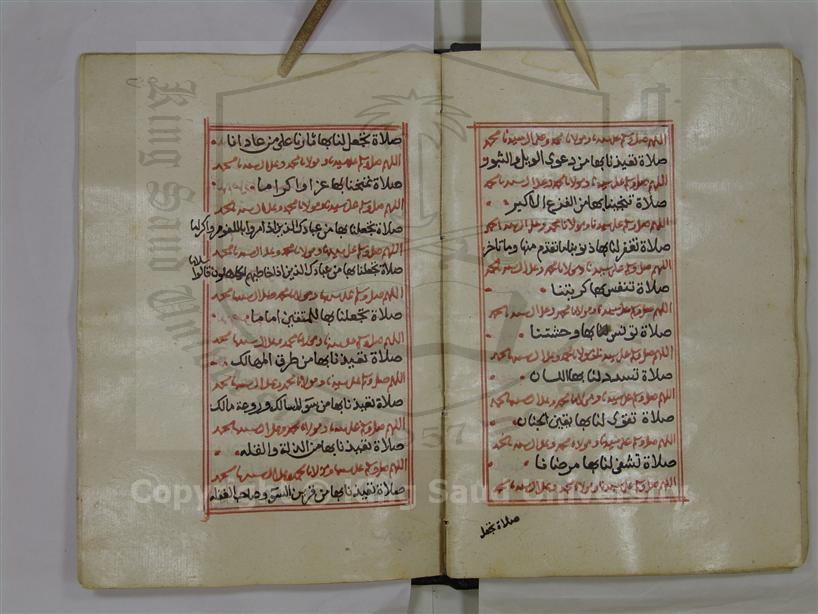 اللهم صل وسلم على سيدنا ومولانا محمد وعلى آل سيدنا محمد
صلاة تعيذنا بها من دعوى الويل والثبور
اللهم صل وسلم على سيدنا ومولانا محمد وعلى آل سيدنا محمد
صلاة تنجينا بها من الفزع الأكبر
اللهم صل وسلم على سيدنا ومولانا محمد وعلى آل سيدنا محمد
صلاة تغفر لنا بها ذنوبنا ما تقدم منها وما تأخر
اللهم صل وسلم على سيدنا ومولانا محمد وعلى آل سيدنا محمد
صلاة تنفس بها كربتنا
اللهم صل وسلم على سيدنا ومولانا محمد وعلى آل سيدنا محمد
صلاة تونس بها وحشتنا
اللهم صل وسلم على سيدنا ومولانا محمد وعلى آل سيدنا محمد
صلاة تسدد لنا بها اللسان
اللهم صل وسلم على سيدنا ومولانا محمد وعلى آل سيدنا محمد
صلاة تقوى لنا بها يقين الجنان
اللهم صل وسلم على سيدنا ومولانا محمد وعلى آل سيدنا محمد
صلاة تشفى لنا بها مرضانا
اللهم صل وسلم على سيدنا ومولانا محمد وعلى آل سيدنا محمد
صلاة تجعل
صلاة تجعل لنا بها ثارنا على من عادانا
اللهم صل وسلم على سيدنا ومولانا محمد وعلى آل سيدنا محمد
صلاة تمنحنا بها عزا واكراما
اللهم صل وسلم على سيدنا ومولانا محمد وعلى آل سيدنا محمد
صلاة تجعلنا بها من عبادك الذين اذا مروا باللغو مروا كراما
اللهم صل وسلم على سيدنا ومولانا محمد وعلى آل سيدنا محمد
صلاة تجعلنا بها من عبادك الذين اذا خاطبهم الجاهلون قالوا سلاما
اللهم صل وسلم على سيدنا ومولانا محمد وعلى آل سيدنا محمد
صلاة تجعلنا بها للمتقين اماما
اللهم صل وسلم على سيدنا ومولانا محمد وعلى آل سيدنا محمد
صلاة تعيذنا بها من طرق المهالك
اللهم صل وسلم على سيدنا ومولانا محمد وعلى آل سيدنا محمد
صلاة تعيذنا بها من سوء المسالك وروعة مالك
اللهم صل وسلم على سيدنا ومولانا محمد وعلى آل سيدنا محمد
صلاة تعيذنا بها من الذلة والقله
اللهم صل وسلم على سيدنا ومولانا محمد وعلى آل سيدنا محمد
صلاة تعيذنا بها من قرين السوء وصاحب الغفله
King Saud University
1957
Copyright © King Saud University